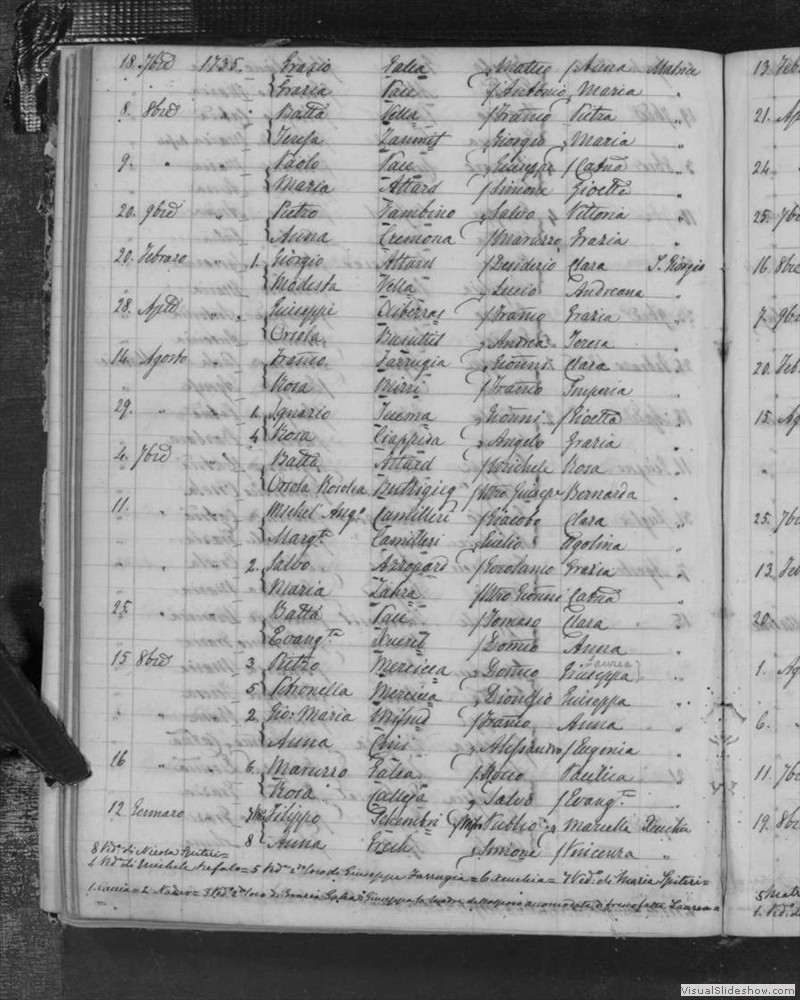 18. 7bre 1735. Grazio Galea Matteo Anna Matrice
Grazia Pace Antonio Maria
8. 8bre Batta Vella Franco Pietra
Teresa Zammit Giorgio Maria
9. " Paolo Pace Giuseppe Catna
Maria Attard Simone Gioetta
20. 9bre " Pietro Salvo Vittoria
Anna Cremona Maruzzo Grazia
20. Febraro 1. Giorgio Attard Desiderio Clara S. Giorgio
Modesta Vella Lucio Andreana
28. Aple Giuseppi Franco Grazia
Orsola Busuttil Andrea Teresa
14. Agosto Franco Farrugia Gionni Clara
Rosa Mizzi Franco Imperia
29. " 1. Ignazio Tuema Gionni Gioetta
4. Rosa Ciappisa Angelo Grazia
4. 7bre Batta Attard Michele Rosa
Orsola Rosolea Buttigieg Mro Giusepe Bernarda
11. " Michel' Ango Camilleri Giacobo Clara
Margta Camilleri Giulio Agolina
" 2. Salvo Azzopard Gorolamo Grazia
Maria Zahra Mro Gionni Catna
25. Batta Pace Tomaso Clara
Evangta Xueret Domco Anna
15 8bre 3. Pietro Mercieca Domco Giuseppa Laurea
5. Petronella Mercieca Dionisio Giuseppa
" " 2. Gio: Maria Mifsud Franco Anna
Anna Alesandro Eugenia
16 " 6. Maruzzo Galea Rocco Paulica
Rosa Calleja Salvo Evangta
12 Gennaro Filippo Publio Marcella
8 Anna Grech Simone Vincenza
8 Vda di Nicola Spiteri =
4 Vda di Michele Refalo = 5 Vda 2 loco di Giuseppe Farrugia = 6 = 7 Vdo di Maria Spiteri =
1. = 2 = 3 Vdo 2 loco di Grazia Galea Giuseppa la madre Laurea =
13. Feb
21. Ap
24.
25. 7b
16. 8bre
7. 9b
20. Feb
15. Ag
25. 7b
13. Feb
20.
1. Ag
6.
11. 7b
19. 8b
VisualSlideshow.com